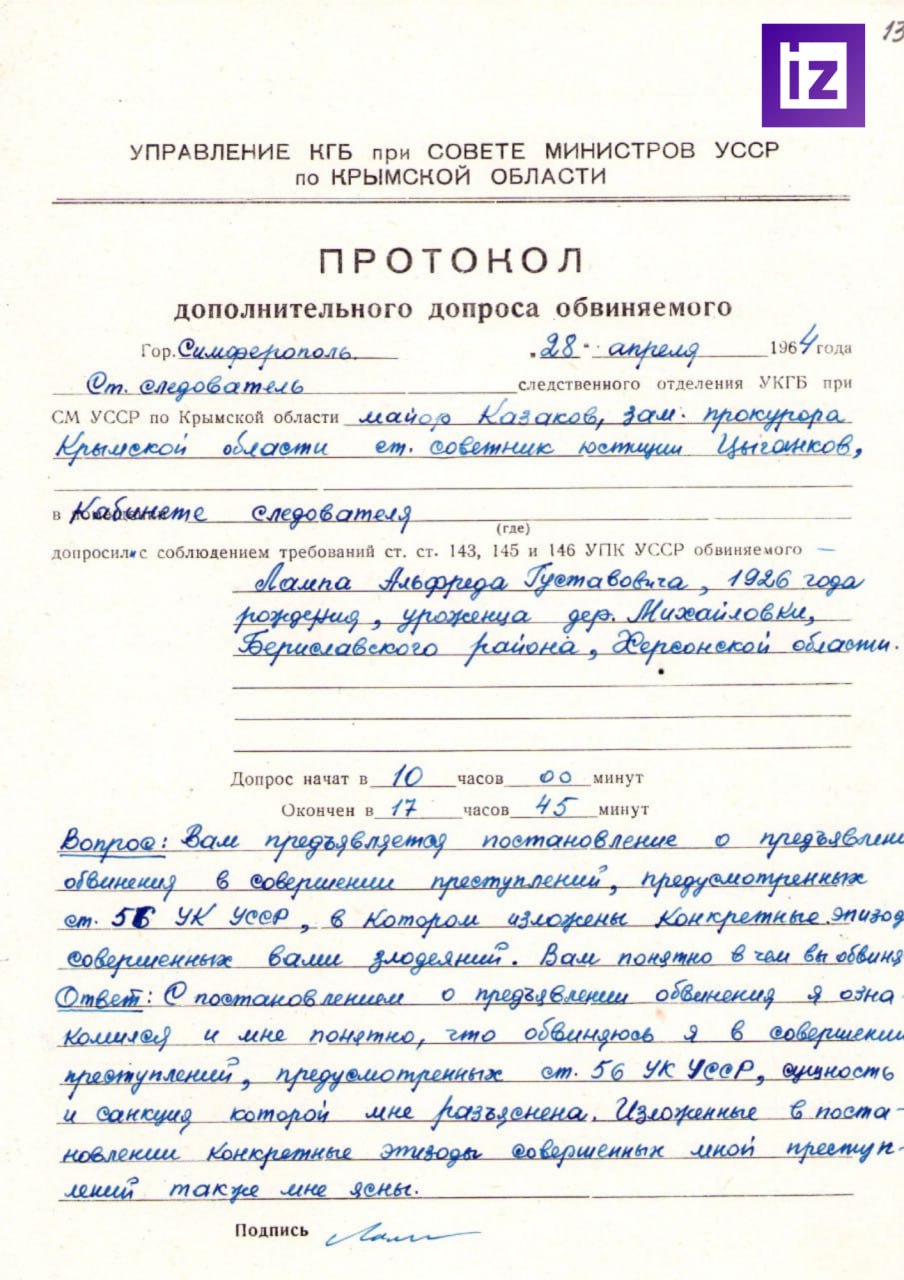 13
iz
УПРАВЛЕНИЕ КГБ при СОВЕТЕ МИНИСТРОВ УССР
по КРЫМСКОЙ ОБЛАСТИ
ПРОТОКОЛ
дополнительного допроса обвиняемого
Гор. Симферополь. „28“ апреля 1964 года
Ст. следователь следственного отделения УКГБ при
СМ УССР по Крымской области майор Казаков, зам. прокурора
Крымской области ст. советник юстиции Цыганков,
в Кабинете следователя
(где)
допросили с соблюдением требований ст. ст. 143, 145 и 146 УПК УССР обвиняемого —
Лампа Альфреда Густавовича, 1926 года
рождения, уроженца дер. Михайловки,
Бериславского района, Херсонской области.
Допрос начат в 10 часов 00 минут
Окончен в 17 часов 45 минут
Вопрос: Вам предъявляется постановление о предъявлени
обвинения в совершении преступлений, предусмотренных
ст. 56 УК УССР, в котором изложены конкретные эпизод
совершенных вами злодеяний. Вам понятно в чем вы обвиня
Ответ: С постановлением о предъявлении обвинения я озна-
комился и мне понятно, что обвиняюсь я в совершении
преступлений, предусмотренных ст. 56 УК УССР, сущность
и санкция которой мне разъяснена. Изложенные в поста-
новлении конкретные эпизоды совершенных мной преступ-
лений также мне ясны.
Подпись